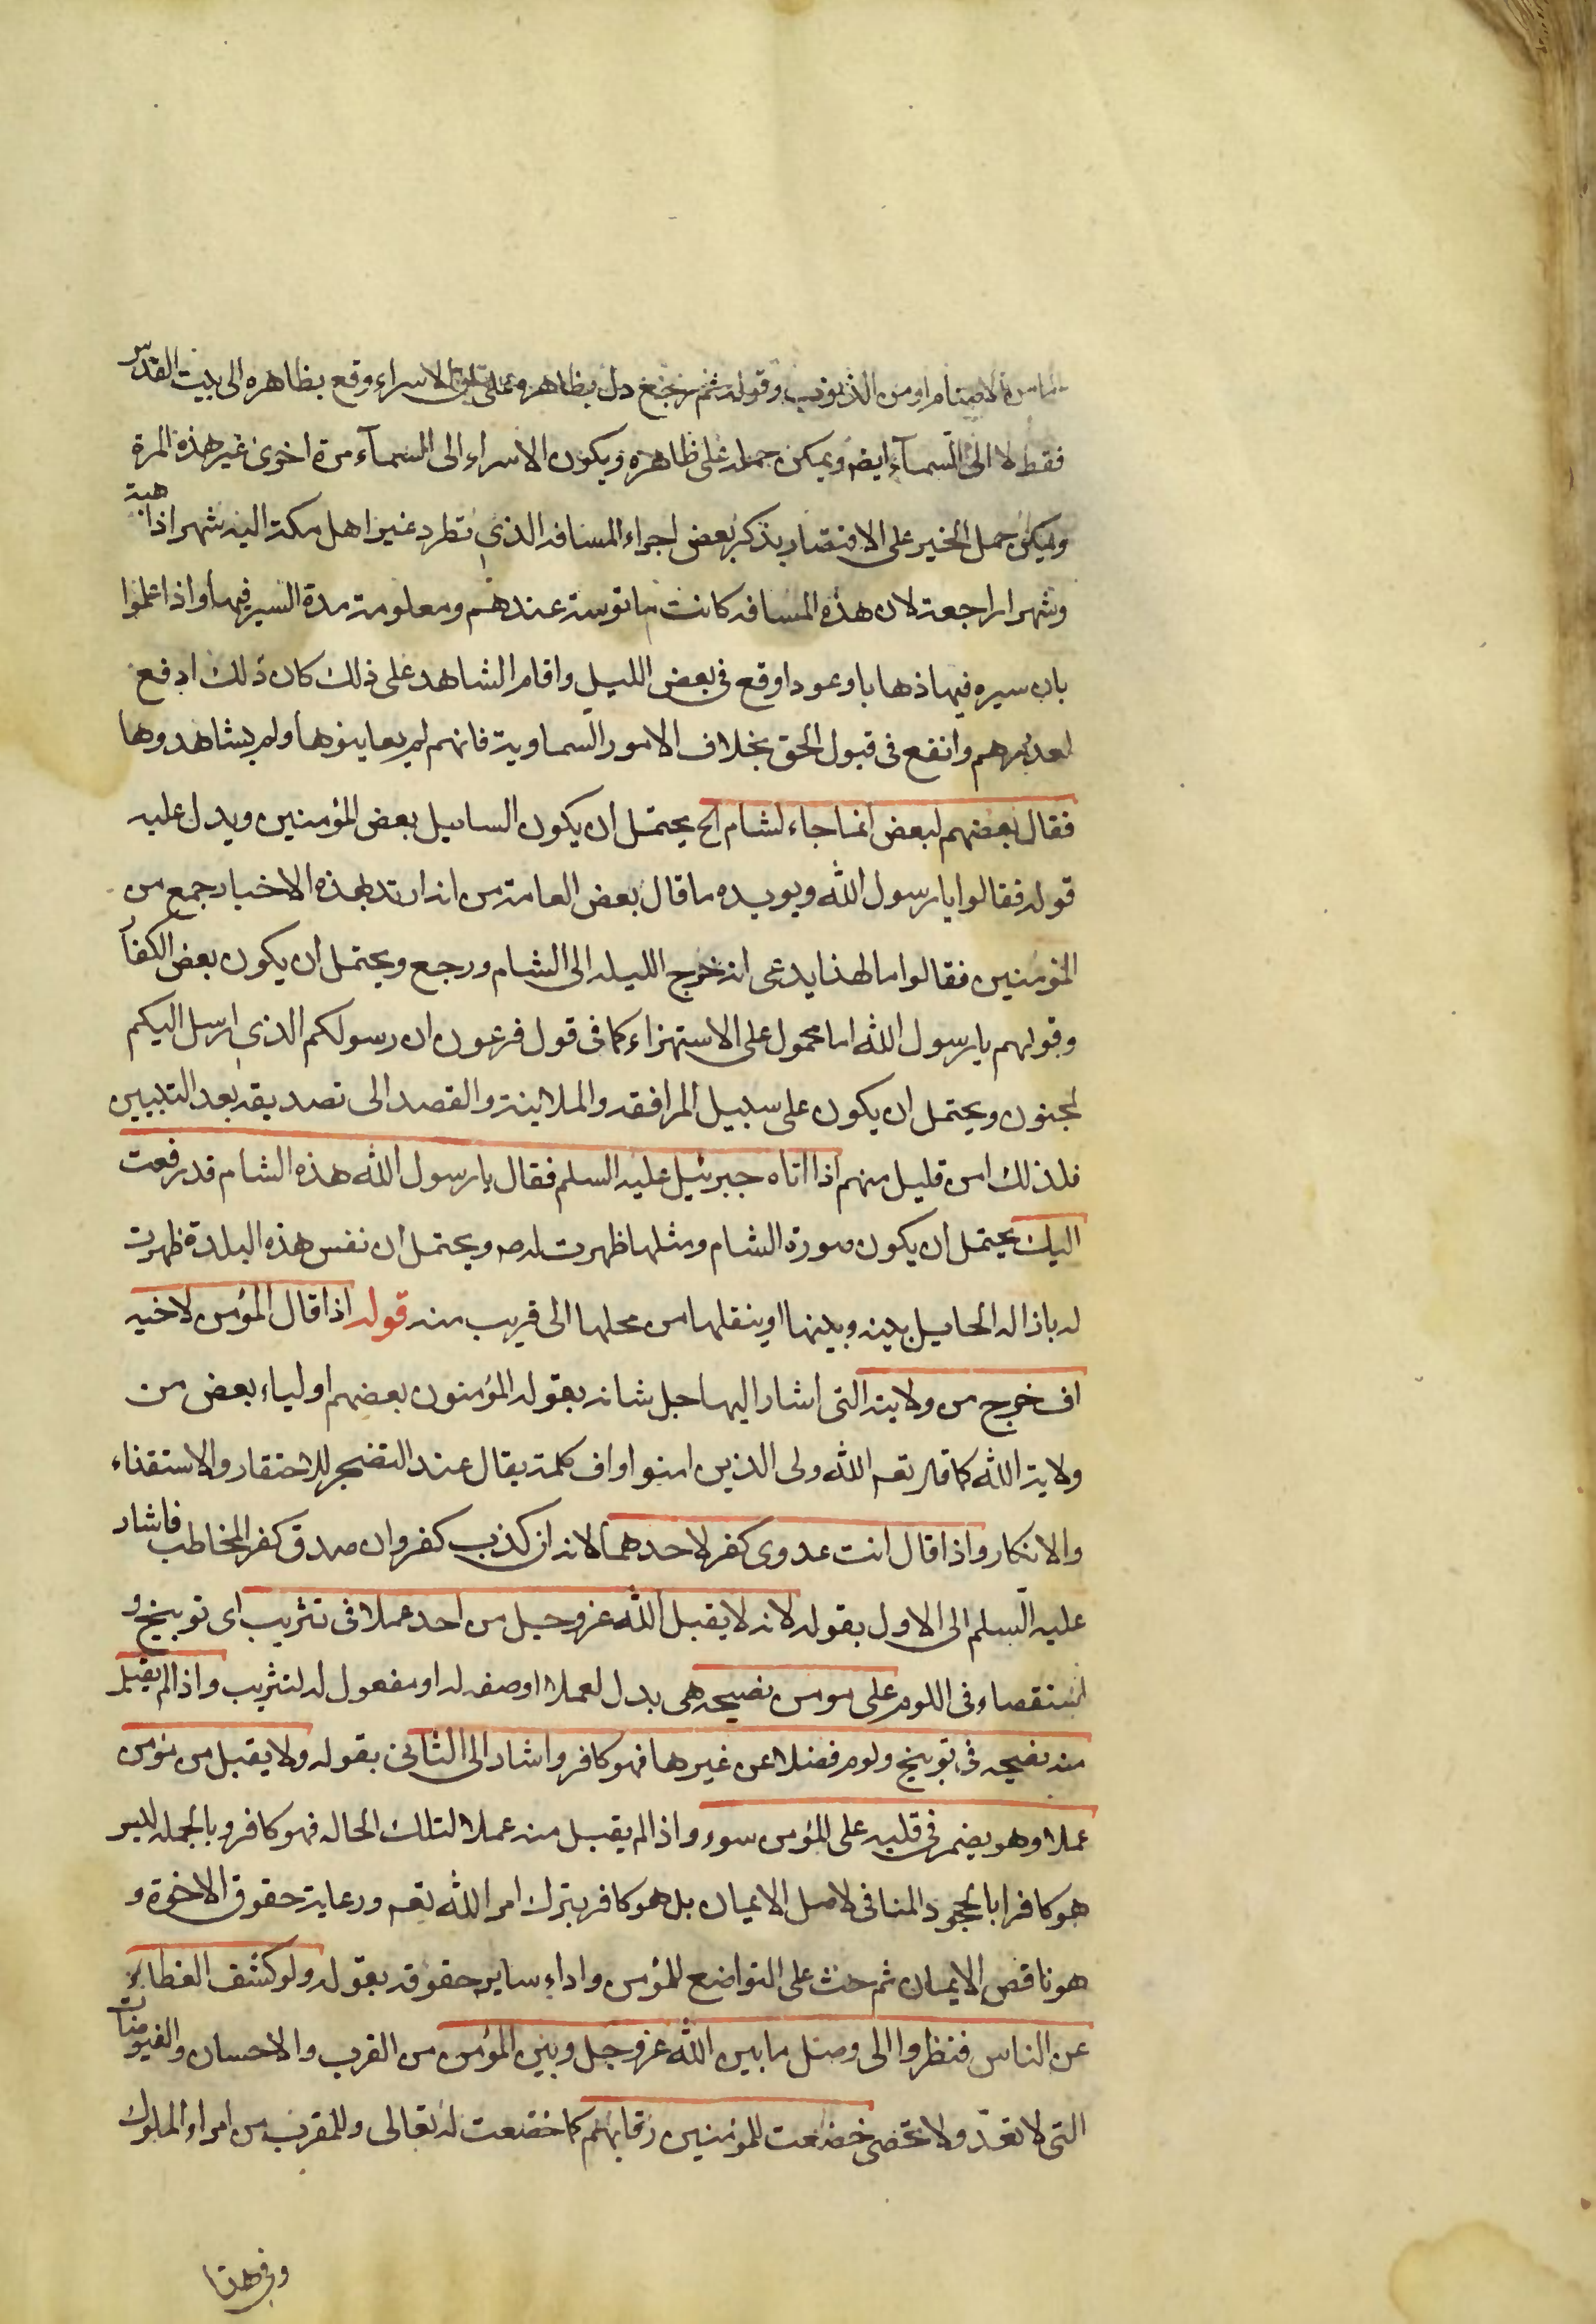 الاصنام او من الذنوب وقوله ثم رجع دل بظاهره على ان الاسراء وقع بظاهره الى بيت المقدس
فقط لا الى السمآء ايضا ويمكن حمله على ظاهره ويكون الاسراء الى السمآء مرة اخرى غير هذه المرة
ويمكن حمل الخبر على الاقتصار بذكر بعض اجزاء المسافه الذي تطرد عير اهل مكة اليه شهرا ذاهبة
وشهرا راجعة لان هذه المسافه كانت مانوسة عندهم ومعلومة مدة السير فيها واذا علموا
بان سيره فيها ذهابا وعودا وقع فى بعض الليل واقام الشاهد على ذلك كان ذلك ادفع
لعذرهم وانفع فى قبول الحق بخلاف الامور السماوية فانهم لم يعاينوها ولم يشاهدوها
فقال بعضهم لبعض انما جاء لشام الخ يحتمل ان يكون السايل بعض المؤمنين ويدل عليه
قوله فقالوا يا رسول الله ويويده ما قال بعض العامة من انه ارتد بهذه الاخبار جمع من
المؤمنين فقالوا ما لهذا يدعى انه خرج الليله الى الشام ورجع ويحتمل ان يكون بعض الكفار
وقولهم يا رسول الله اما محمول على الاستهزاء كما فى قول فرعون ان رسولكم الذي ارسل اليكم
لمجنون ويحتمل ان يكون على سبيل المرافقه والملاينة والقصد الى تصديقه بعد التبيين
فلذلك امن قليل منهم اذا اتاه جبرئيل عليه السلم فقال يا رسول الله هذه الشام قد رفعت
اليك يحتمل ان يكون صورة الشام ومثلها ظهرت له ص ويحتمل ان نفس هذه البلدة ظهرت
له باذاله الحايل بينه وبينها او بنقلها من محلها الى قريب منه قوله اذا قال المؤمن لاخيه
اف خرج من ولايته التى اشار اليها جل شانه بقوله المؤمنون بعضهم اولياء بعض من
ولاية الله كما قال تعم الله ولى الذين امنوا واف كلمة يقال عند التضجر للاحتقار والاستقذاء
والانكار واذا قال انت عدوى كفر لاحدهما لانه ان كذب كفر وان صدق كفر المخاطب فاشار
عليه السلم الى الاول بقوله لانه لا يقبل الله عز وجل من احد عملا فى تثريب اى توبيخ و
استقصاء فى اللوم على مومن نصيحه هى بدل لعملا او صفه له او مفعول له لتثريب واذا لم يقبل
منه نصيحه فى توبيخ ولوم فضلا عن غيرها فهو كافر واشار الى الثانى بقوله ولا يقبل من مؤمن
عملا وهو يضمر فى قلبه على المؤمن سوء واذا لم يقبل منه عملا لتلك الحاله فهو كافر وبالجمله ليس
هو كافرا بالجحود المنافى لاصل الايمان بل هو كافر بترك امر الله تعم ورعاية حقوق الاخوة و
هو ناقص الايمان ثم حث على التواضع للمؤمن واداء ساير حقوقه بقوله ولو كشف الغطاء
عن الناس فنظروا الى وصل ما بين الله عز وجل وبين المؤمن من القرب والاحسان والفيوضات
التى لا تعدّ ولا تحصى خضعت للمؤمنين رقابهم كما خضعت له تعالى وللمقرب من امراء الملوك
وفى هذا